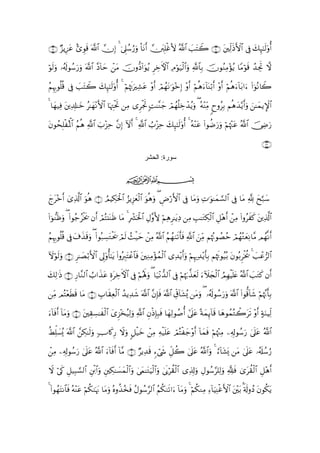 أُولَٰئِكَ فِي الْأَذَلِّينَ ۝ كَتَبَ اللَّهُ لَأَغْلِبَنَّ أَنَا وَرُسُلِي ۚ إِنَّ اللَّهَ قَوِيٌّ عَزِيزٌ ۝
لَا تَجِدُ قَوْمًا يُؤْمِنُونَ بِاللَّهِ وَالْيَوْمِ الْآخِرِ يُوَادُّونَ مَنْ حَادَّ اللَّهَ وَرَسُولَهُ وَلَوْ
كَانُوا آبَاءَهُمْ أَوْ أَبْنَاءَهُمْ أَوْ إِخْوَانَهُمْ أَوْ عَشِيرَتَهُمْ ۚ أُولَٰئِكَ كَتَبَ فِي قُلُوبِهِمُ
الْإِيمَانَ وَأَيَّدَهُمْ بِرُوحٍ مِنْهُ ۖ وَيُدْخِلُهُمْ جَنَّاتٍ تَجْرِي مِنْ تَحْتِهَا الْأَنْهَارُ خَالِدِينَ فِيهَا ۚ
رَضِيَ اللَّهُ عَنْهُمْ وَرَضُوا عَنْهُ ۚ أُولَٰئِكَ حِزْبُ اللَّهِ ۚ أَلَا إِنَّ حِزْبَ اللَّهِ هُمُ الْمُفْلِحُونَ
۝
سورة: الحشر
بِسْمِ اللَّهِ الرَّحْمَٰنِ الرَّحِيمِ
سَبَّحَ لِلَّهِ مَا فِي السَّمَاوَاتِ وَمَا فِي الْأَرْضِ ۖ وَهُوَ الْعَزِيزُ الْحَكِيمُ ۝ هُوَ الَّذِي أَخْرَجَ
الَّذِينَ كَفَرُوا مِنْ أَهْلِ الْكِتَابِ مِنْ دِيَارِهِمْ لِأَوَّلِ الْحَشْرِ ۚ مَا ظَنَنْتُمْ أَنْ يَخْرُجُوا ۖ وَظَنُّوا
أَنَّهُمْ مَانِعَتُهُمْ حُصُونُهُمْ مِنَ اللَّهِ فَأَتَاهُمُ اللَّهُ مِنْ حَيْثُ لَمْ يَحْتَسِبُوا ۖ وَقَذَفَ فِي قُلُوبِهِمُ
الرُّعْبَ ۚ يُخْرِبُونَ بُيُوتَهُمْ بِأَيْدِيهِمْ وَأَيْدِي الْمُؤْمِنِينَ فَاعْتَبِرُوا يَا أُولِي الْأَبْصَارِ ۝ وَلَوْلَا
أَنْ كَتَبَ اللَّهُ عَلَيْهِمُ الْجَلَاءَ لَعَذَّبَهُمْ فِي الدُّنْيَا ۖ وَلَهُمْ فِي الْآخِرَةِ عَذَابُ النَّارِ ۝ ذَٰلِكَ
بِأَنَّهُمْ شَاقُّوا اللَّهَ وَرَسُولَهُ ۖ وَمَنْ يُشَاقِّ اللَّهَ فَإِنَّ اللَّهَ شَدِيدُ الْعِقَابِ ۝ مَا قَطَعْتُمْ مِنْ
لِينَةٍ أَوْ تَرَكْتُمُوهَا قَائِمَةً عَلَىٰ أُصُولِهَا فَبِإِذْنِ اللَّهِ وَلِيُخْزِيَ الْفَاسِقِينَ ۝ وَمَا أَفَاءَ
اللَّهُ عَلَىٰ رَسُولِهِ مِنْهُمْ فَمَا أَوْجَفْتُمْ عَلَيْهِ مِنْ خَيْلٍ وَلَا رِكَابٍ وَلَٰكِنَّ اللَّهَ يُسَلِّطُ
رُسُلَهُ عَلَىٰ مَنْ يَشَاءُ ۚ وَاللَّهُ عَلَىٰ كُلِّ شَيْءٍ قَدِيرٌ ۝ مَا أَفَاءَ اللَّهُ عَلَىٰ رَسُولِهِ مِنْ
أَهْلِ الْقُرَىٰ فَلِلَّهِ وَلِلرَّسُولِ وَلِذِي الْقُرْبَىٰ وَالْيَتَامَىٰ وَالْمَسَاكِينِ وَابْنِ السَّبِيلِ كَيْ لَا
يَكُونَ دُولَةً بَيْنَ الْأَغْنِيَاءِ مِنْكُمْ ۚ وَمَا آتَاكُمُ الرَّسُولُ فَخُذُوهُ وَمَا نَهَاكُمْ عَنْهُ فَانْتَهُوا ۚ